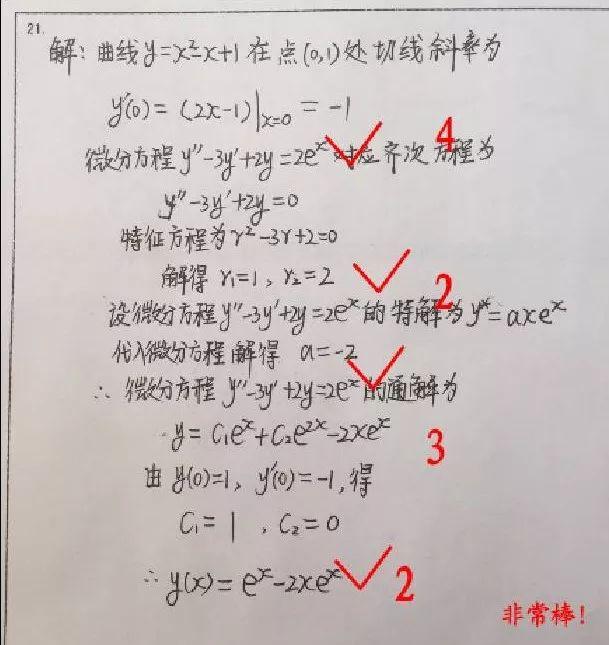 21.
解：曲线y=x²-x+1在点(0,1)处切线斜率为
y'(0)=(2x-1)|x=0 = -1
4
微分方程y''-3y'+2y=2eˣ对应齐次方程为
y''-3y'+2y=0
特征方程为r²-3r+2=0
解得 r₁=1, r₂=2
2
设微分方程y''-3y'+2y=2eˣ的特解为y*=axeˣ
代入微分方程解得 a=-2
∴ 微分方程 y''-3y'+2y=2eˣ的通解为
y=C₁eˣ+C₂e²ˣ-2xeˣ
3
由 y(0)=1, y'(0)=-1,得
C₁=1, C₂=0
∴ y(x)=eˣ-2xeˣ
2
非常棒！